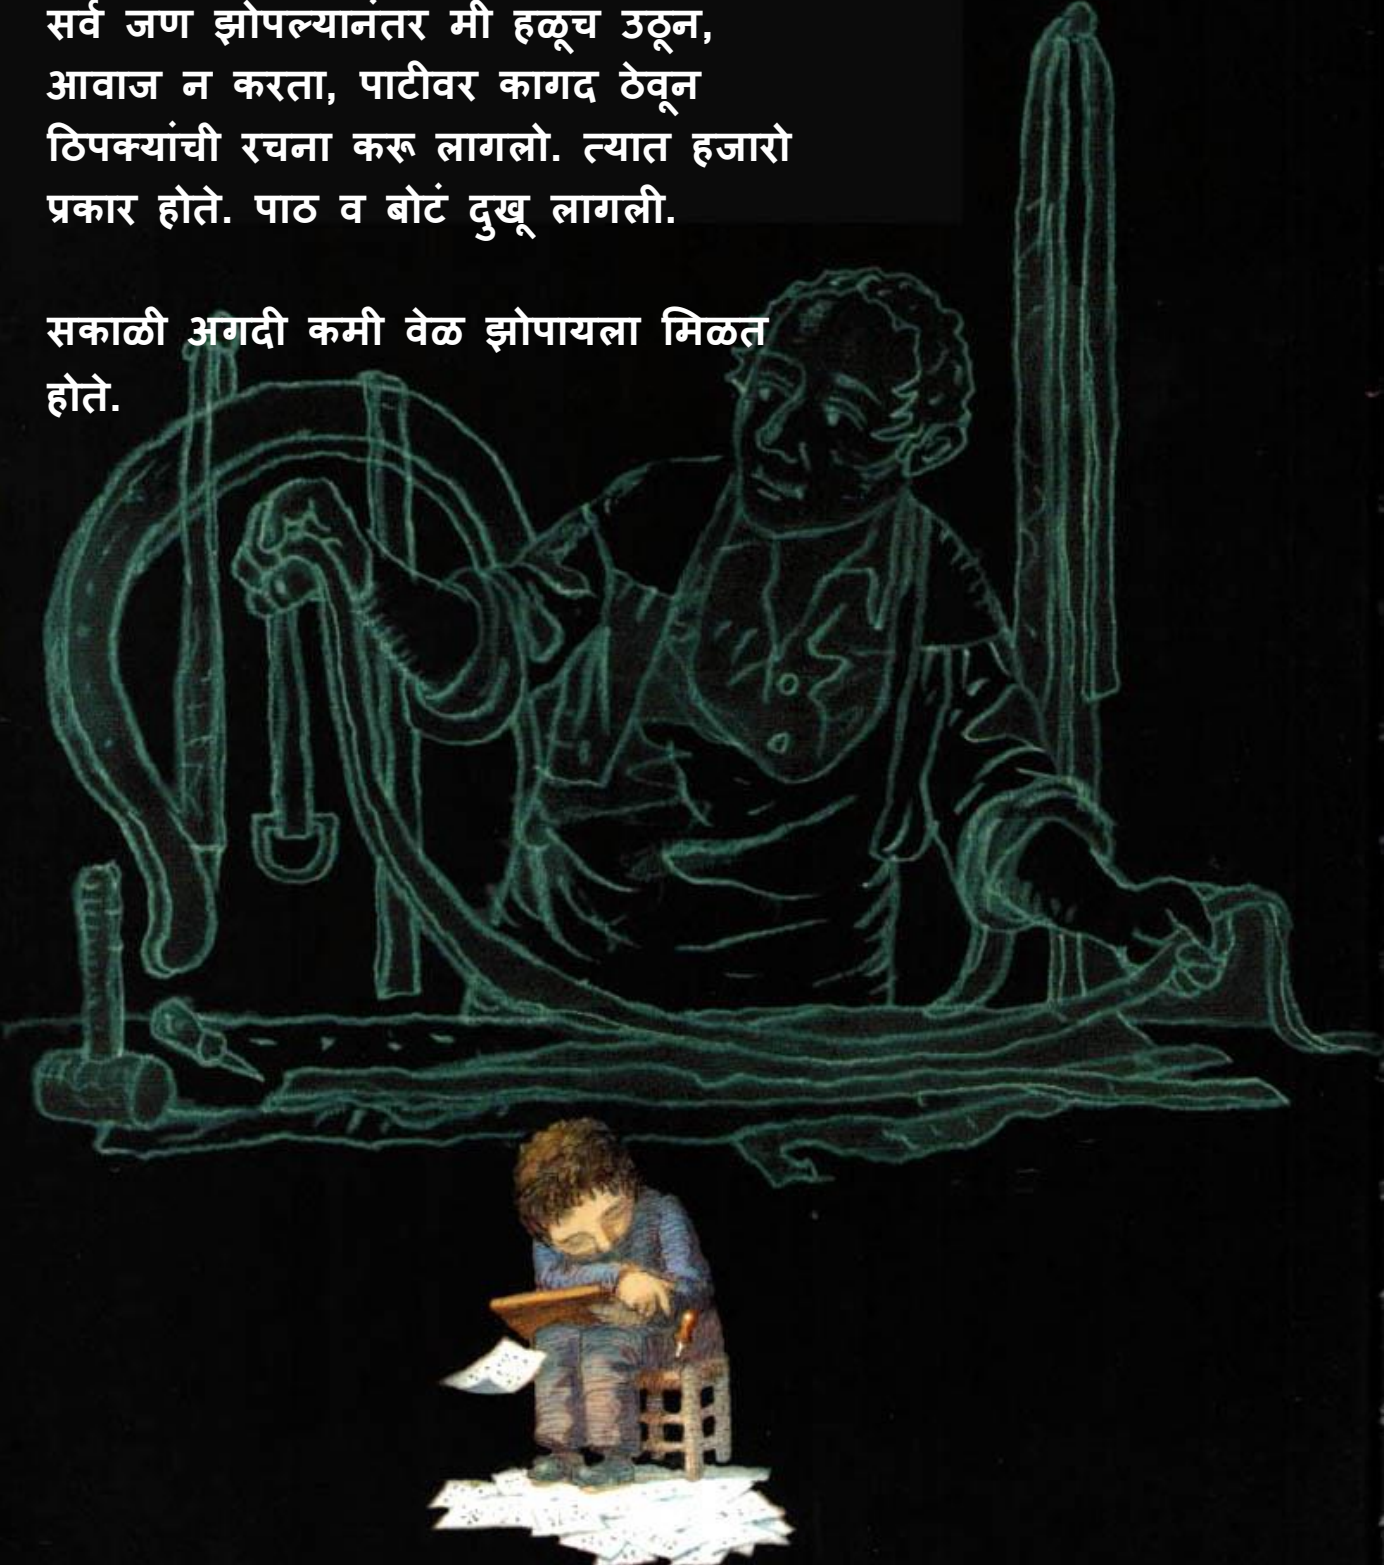 सर्व जण झोपल्यानंतर मी हळूच उठून,
आवाज न करता, पाटीवर कागद ठेवून
ठिपक्यांची रचना करू लागलो. त्यात हजारो
प्रकार होते. पाठ व बोटं दुखू लागली.
सकाळी अगदी कमी वेळ झोपायला मिळत
होते.